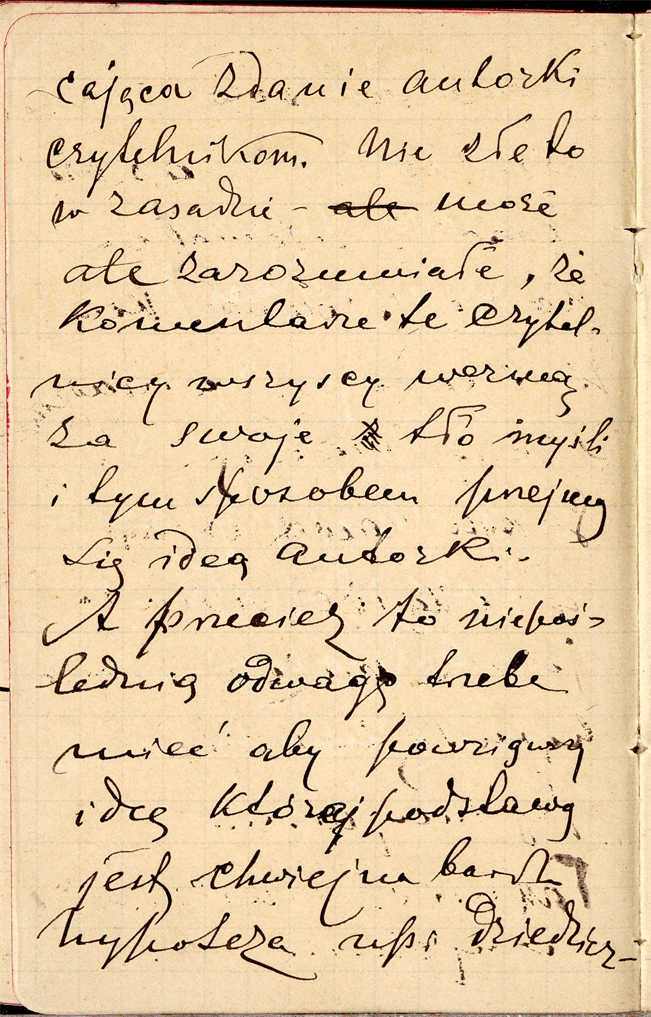 cająca zdanie autorki
czytelnikom. Nie złe to
w zasadzie - ale może
ale zarozumiałe, że
komentarze te czytel-
nicy wszyscy wezmą
za swoje tło myśli
i tym sposobem przejmą
się ideą autorki.
A przecież to niepoś-
lednią odwagę trzeba
mieć aby powziąwszy
ideę której podstawą
jest chwiejna bardzo
hypoteza np. dziedzicz-